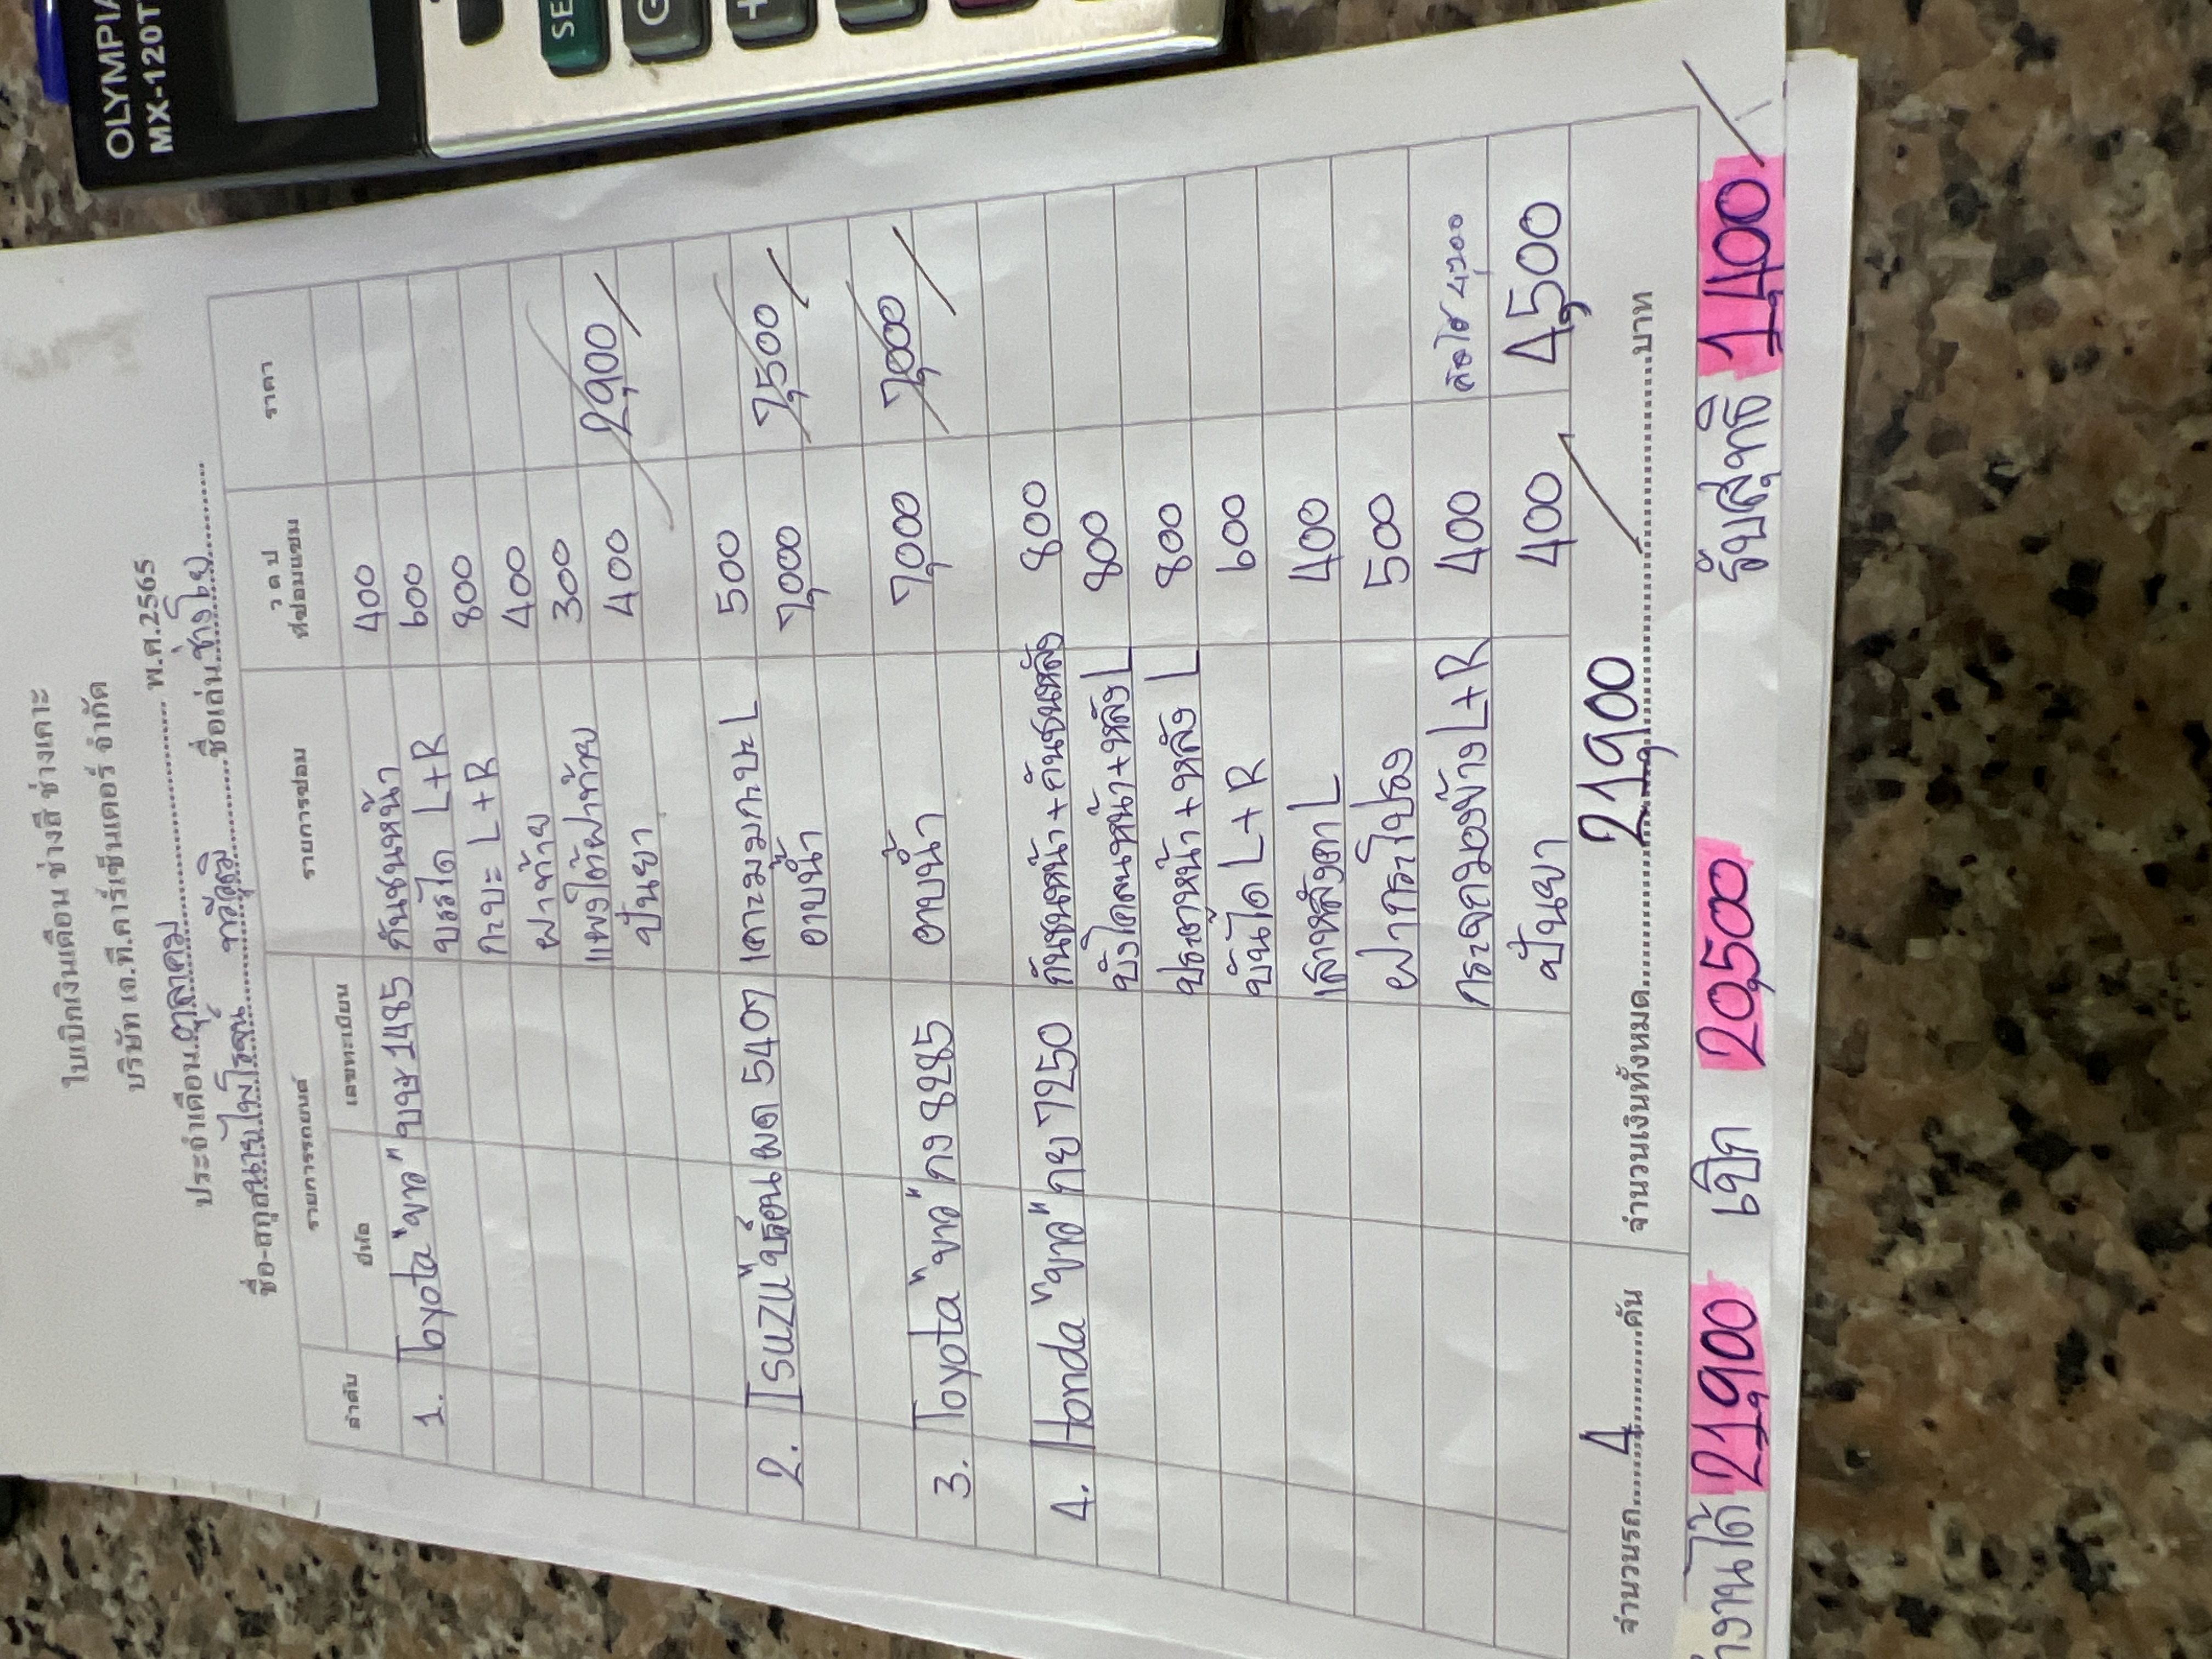 OLYMPIA
MX-120T
SE
G
+
ใบเบิกเงินเดือน ช่างสี ช่างเคาะ
บริษัท เจ.ที.คาร์เซ็นเตอร์ จำกัด
ประจำเดือน ตุลาคม พ.ศ.2565
ชื่อ-สกุล นายไพโรจน์ ทวีสุมิ ชื่อเล่น ช่างโย
ลำดับ รายการรถยนต์ รายการซ่อม ว ด ป ราคา
ยี่ห้อ เลขทะเบียน ที่ซ่อมแซม
1. Toyota "ขาว" บบษ 1485 กันชนหน้า 400
บรรได L+R 600
กะบะ L+R 800
ฝาท้าย 400
แผงใต้ฝาท้าย 300
ปั่นยา 400 2,900
2. ISUZU "บร์อน ผต 5407 เคาะมมกะบะ L 500
อาบน้ำ 7,000 7,500
3. Toyota "ขาว" กง 8285 อาบน้ำ 7,000 7,000
4. Honda "ขาว" กย 7250 กันชนหน้า+กันชนหลัง 800
บังโคลนหน้า+หลัง L 800
ประตูหน้า+หลัง L 800
บันได L+R 600
เสาหลังคา L 400
ฝากระโปรง 500
กระจกมองข้าง L+R 400 4,200
ปั่นยา 400 4,500
จำนวนรถ 4 คัน จำนวนเงินทั้งหมด 21,900 บาท
งานได้ 21,900 เบิก 20,500 รับสุทธิ 1,400